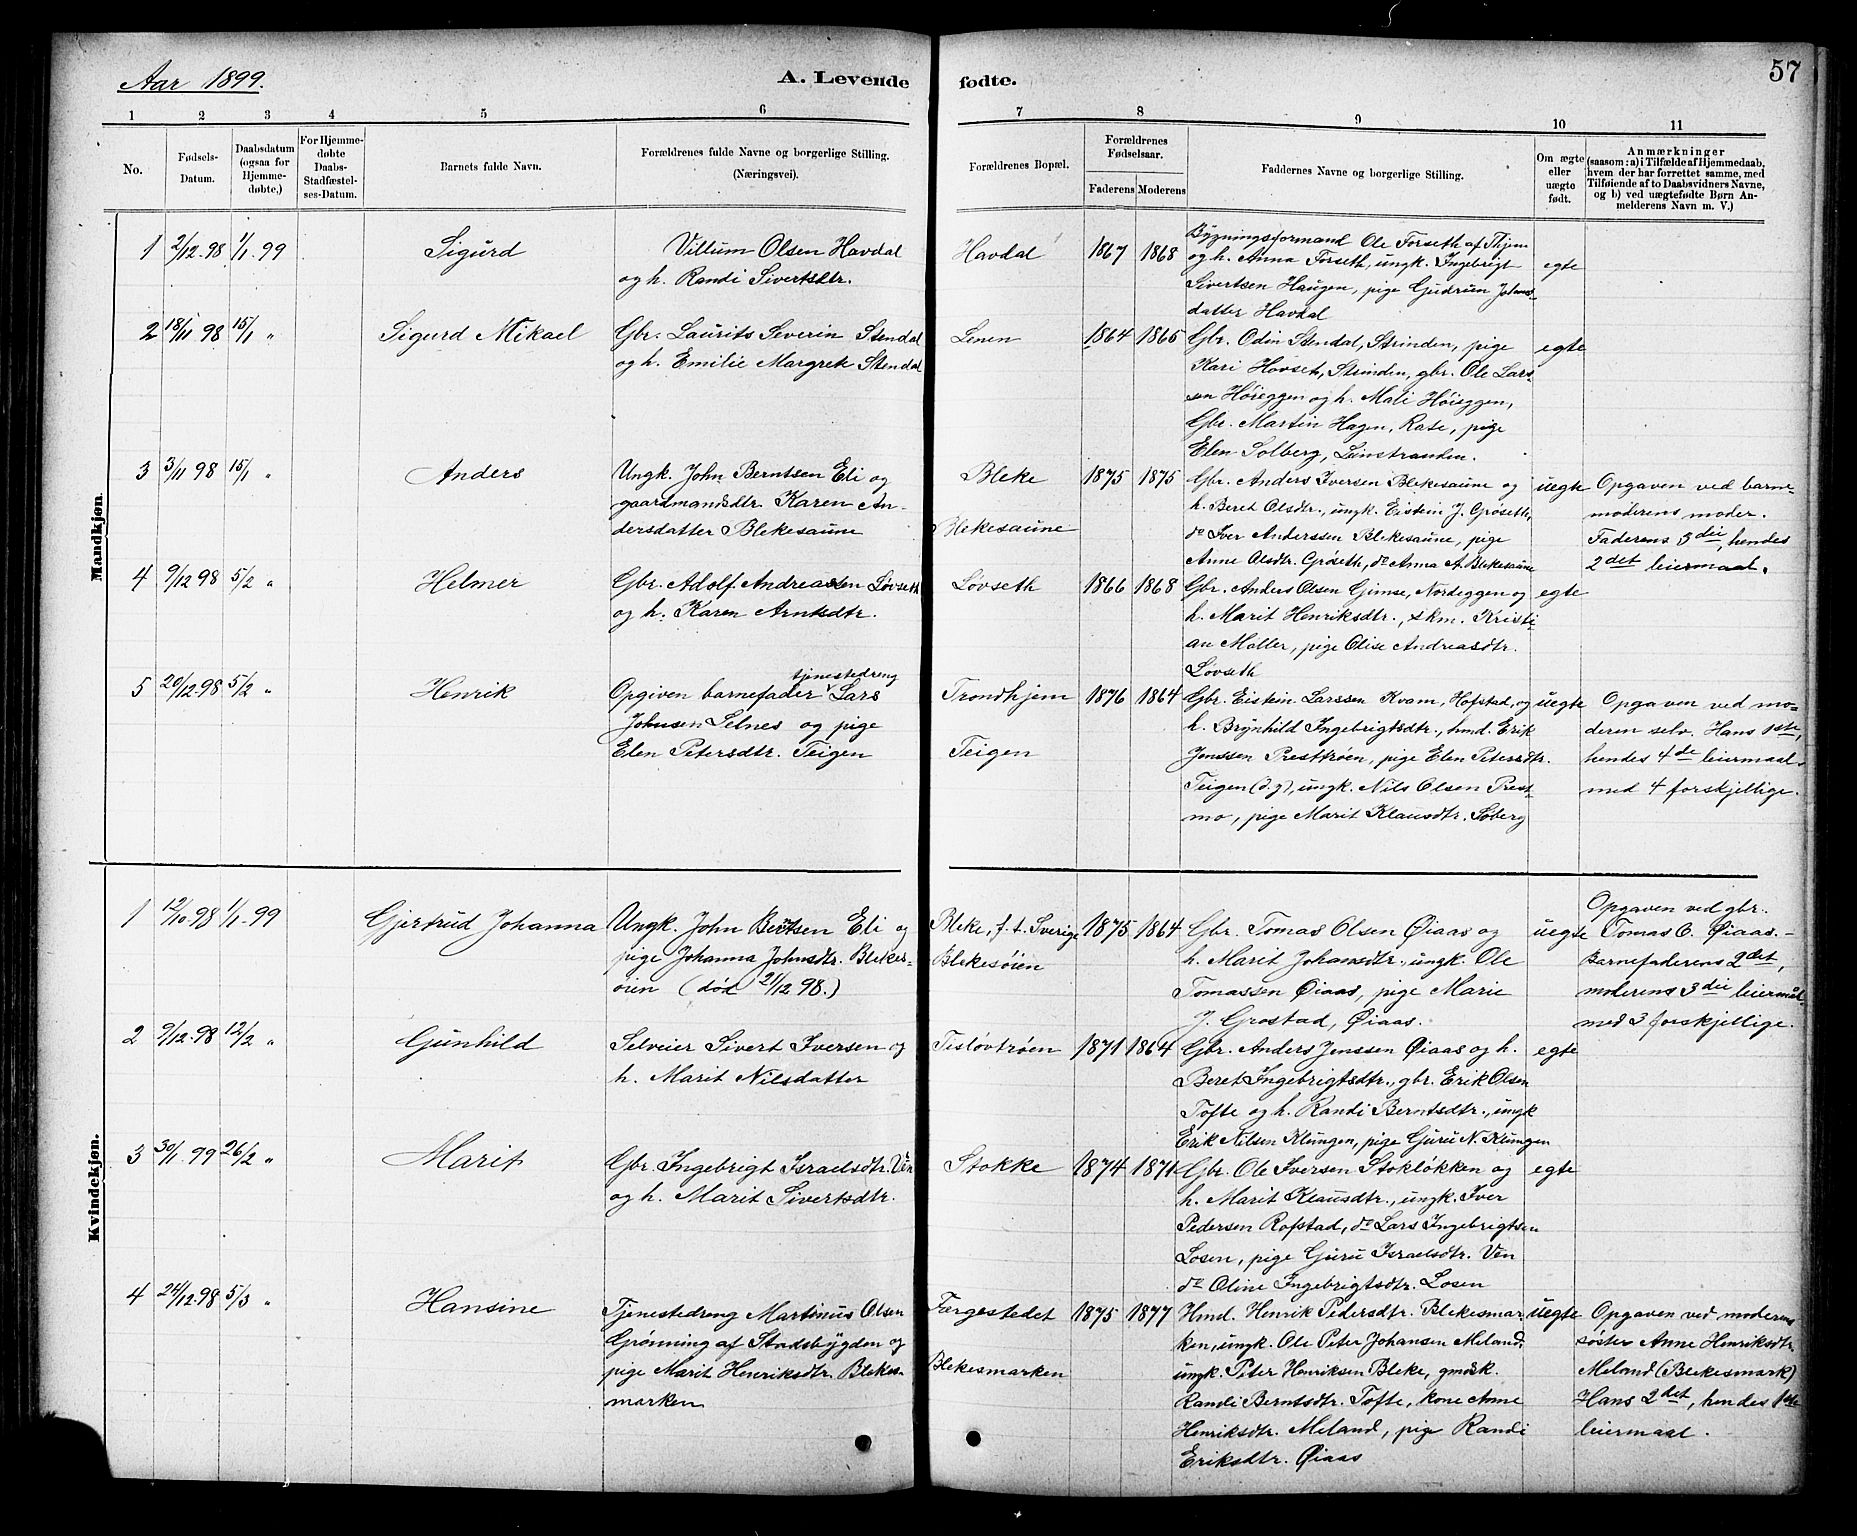 Aar 1899.
A. Levende fødte.
57
1 2 3 4 5 6 7 8 9 10 11
No.
Fødsels-
Datum.
Daabsdatum
(ogsaa for
Hjemme-
døbte.)
For Hjemme-
døbte
Daabs-
Stadfæstel-
ses-Datum.
Barnets fulde Navn.
Forældrenes fulde Navne og borgerlige Stilling.
(Næringsvei).
Forældrenes Bopæl.
Forældrenes
Fødselsaar.
Faderens Moderens
Faddernes Navne og borgerlige Stilling.
Om ægte
eller
uægte
født.
Anmærkninger
(saasom: a) i Tilfælde af Hjemmedaab,
hvem der har forrettet samme, med
Tilføiende af to Daabsvidners Navne,
og b) ved uægtefødte Børn An-
melderens Navn m. V.)
Mandkjøn.
1 2/12.98 1/1.99
Sigurd
Villum Olsen Havdal
og h. Randi Sivertsdtr.
Havdal
1867 1868
Bygningsformand Ole Forseth af Thjem
og h. Anna Forseth, ungk. Ingebrigt
Sivertsen Haugen, pige Gudrun Johns-
datter Havdal
egte
2 18/11 98 15/1 "
Sigurd Mikael
Gbr. Laurits Severin Stendal
og h. Emilie Margrek Stendal
Lenen
1864 1865
Gbr. Odin Stendal, Strinden, pige
Kari Hovset, Strinden, gbr. Ole Lars-
sen Høieggen og h. Mali Høieggen,
Gbr. Martin Hagen, Rate, pige
Elen Solberg, Leinstranden.
egte
3 3/11 98 15/1 "
Anders
Ungk. John Berntsen Eli og
gaardmandsdtr. Karen An-
dersdatter Blekesaune
Bleke
Blekesaune
1875 1875
Gbr. Anders Iversen Blekesaune og
h. Beret Olsdtr., ungk. Eistein J. Grøseth,
do Iver Anderssen Blekesaune, pige
Anne Olsdtr. Grøseth, do Anna A. Blekesaune
uegte
Opgaven ved barne-
moderens moder.
Faderens 3die, hendes
2det leiermaal.
4 9/12 98 5/2 "
Helmer
Gbr. Adolf Andreassen Løvseth
og h. Karen Arntsdtr.
Løvseth
1866 1868
Gbr. Anders Olsen Gimse, Nordeggen og
h. Marit Henriksdtr., skm. Kristi-
an Møller, pige Olise Andreasdtr.
Løvseth
egte
5 20/12.98 5/2 "
Henrik
Opgiven barnefader tjenestedreng Lars
Johnsen Selnes og pige
Elen Petersdtr. Teigen
Trondhjem
Teigen
1876 1864
Gbr. Eistein Larssen Kvam, Hofstad, og
h. Brynhild Ingebrigtsdtr., hmd. Erik
Jenssen Presttrøen, pige Elen Petersdtr.
Teigen (d.y), ungk. Nils Olsen Prest-
mo, pige Marit Klausdtr. Søberg
uegte
Opgaven ved mo-
deren selv. Hans 1ste,
hendes 4de leiermaal.
med 4 forskjellige.
Kvindekjøn.
1 12/10.98 1/1.99
Gjertrud Johanna
Ungk. John Berntsen Eli og
pige Johanna Johnsdtr. Blekes-
øien (død 21/12 98.)
Bleke, f. t. Sverige
Blekesøien
1875 1864
Gbr. Tomas Olsen Øiaas og
h. Marit Johansdtr., ungk. Ole
Tomassen Øiaas, pige Marie
J. Grostad, Øiaas.
uegte
Opgaven ved gbr.
Tomas O. Øiaas. –
Barnefaderens 2det,
moderens 3die leiermål
med 3 forskjellige.
2 9/12.98 12/2 "
Gunhild
Selveier Sivert Iversen og
h. Marit Nilsdatter
Tisløvtrøen
1871 1864
Gbr. Anders Jenssen Øiaas og h.
Beret Ingebrigtsdtr., gbr. Erik Olsen
Tofte og h. Randi Berntsdtr., ungk
Erik Nilsen Klungen, pige Guru N. Klungen
egte
3 30/1 99 26/2 "
Marit
Gbr. Ingebrigt Israelsdtr. Ven
og h. Marit Sivertsdtr.
Stokke
1874 1871
Gbr. Ole Iversen Stokløkken og
h. Marit Klausdtr., ungk. Iver
Pedersen Rofstad, do Lars Ingebrigtsen
Losen, pige Guru Israelsdtr. Ven
do Oline Ingebrigtsdtr. Losen
egte
4 24/12.98 5/3 "
Hansine
Tjenestedreng Martinus Olsen
Grønning af Stadsbygden og
pige Marit Henriksdtr. Blekes-
marken
Færgestedet
Blekesmarken
1875 1877
Hmd. Henrik Pedersdtr. Blekesmar-
ken, ungk. Ole Peter Johansen Meland,
ungk. Peter Henriksen Bleke, gmdsk.
Randi Berntsdtr. Tofte, kone Anne
Henriksdtr. Meland, pige Randi
Eriksdtr. Øiaas
uegte
Opgaven ved moderens
søster Anne Henriksdtr.
Meland (Blekesmark)
Hans 2det, hendes 1ste
leiermaal.